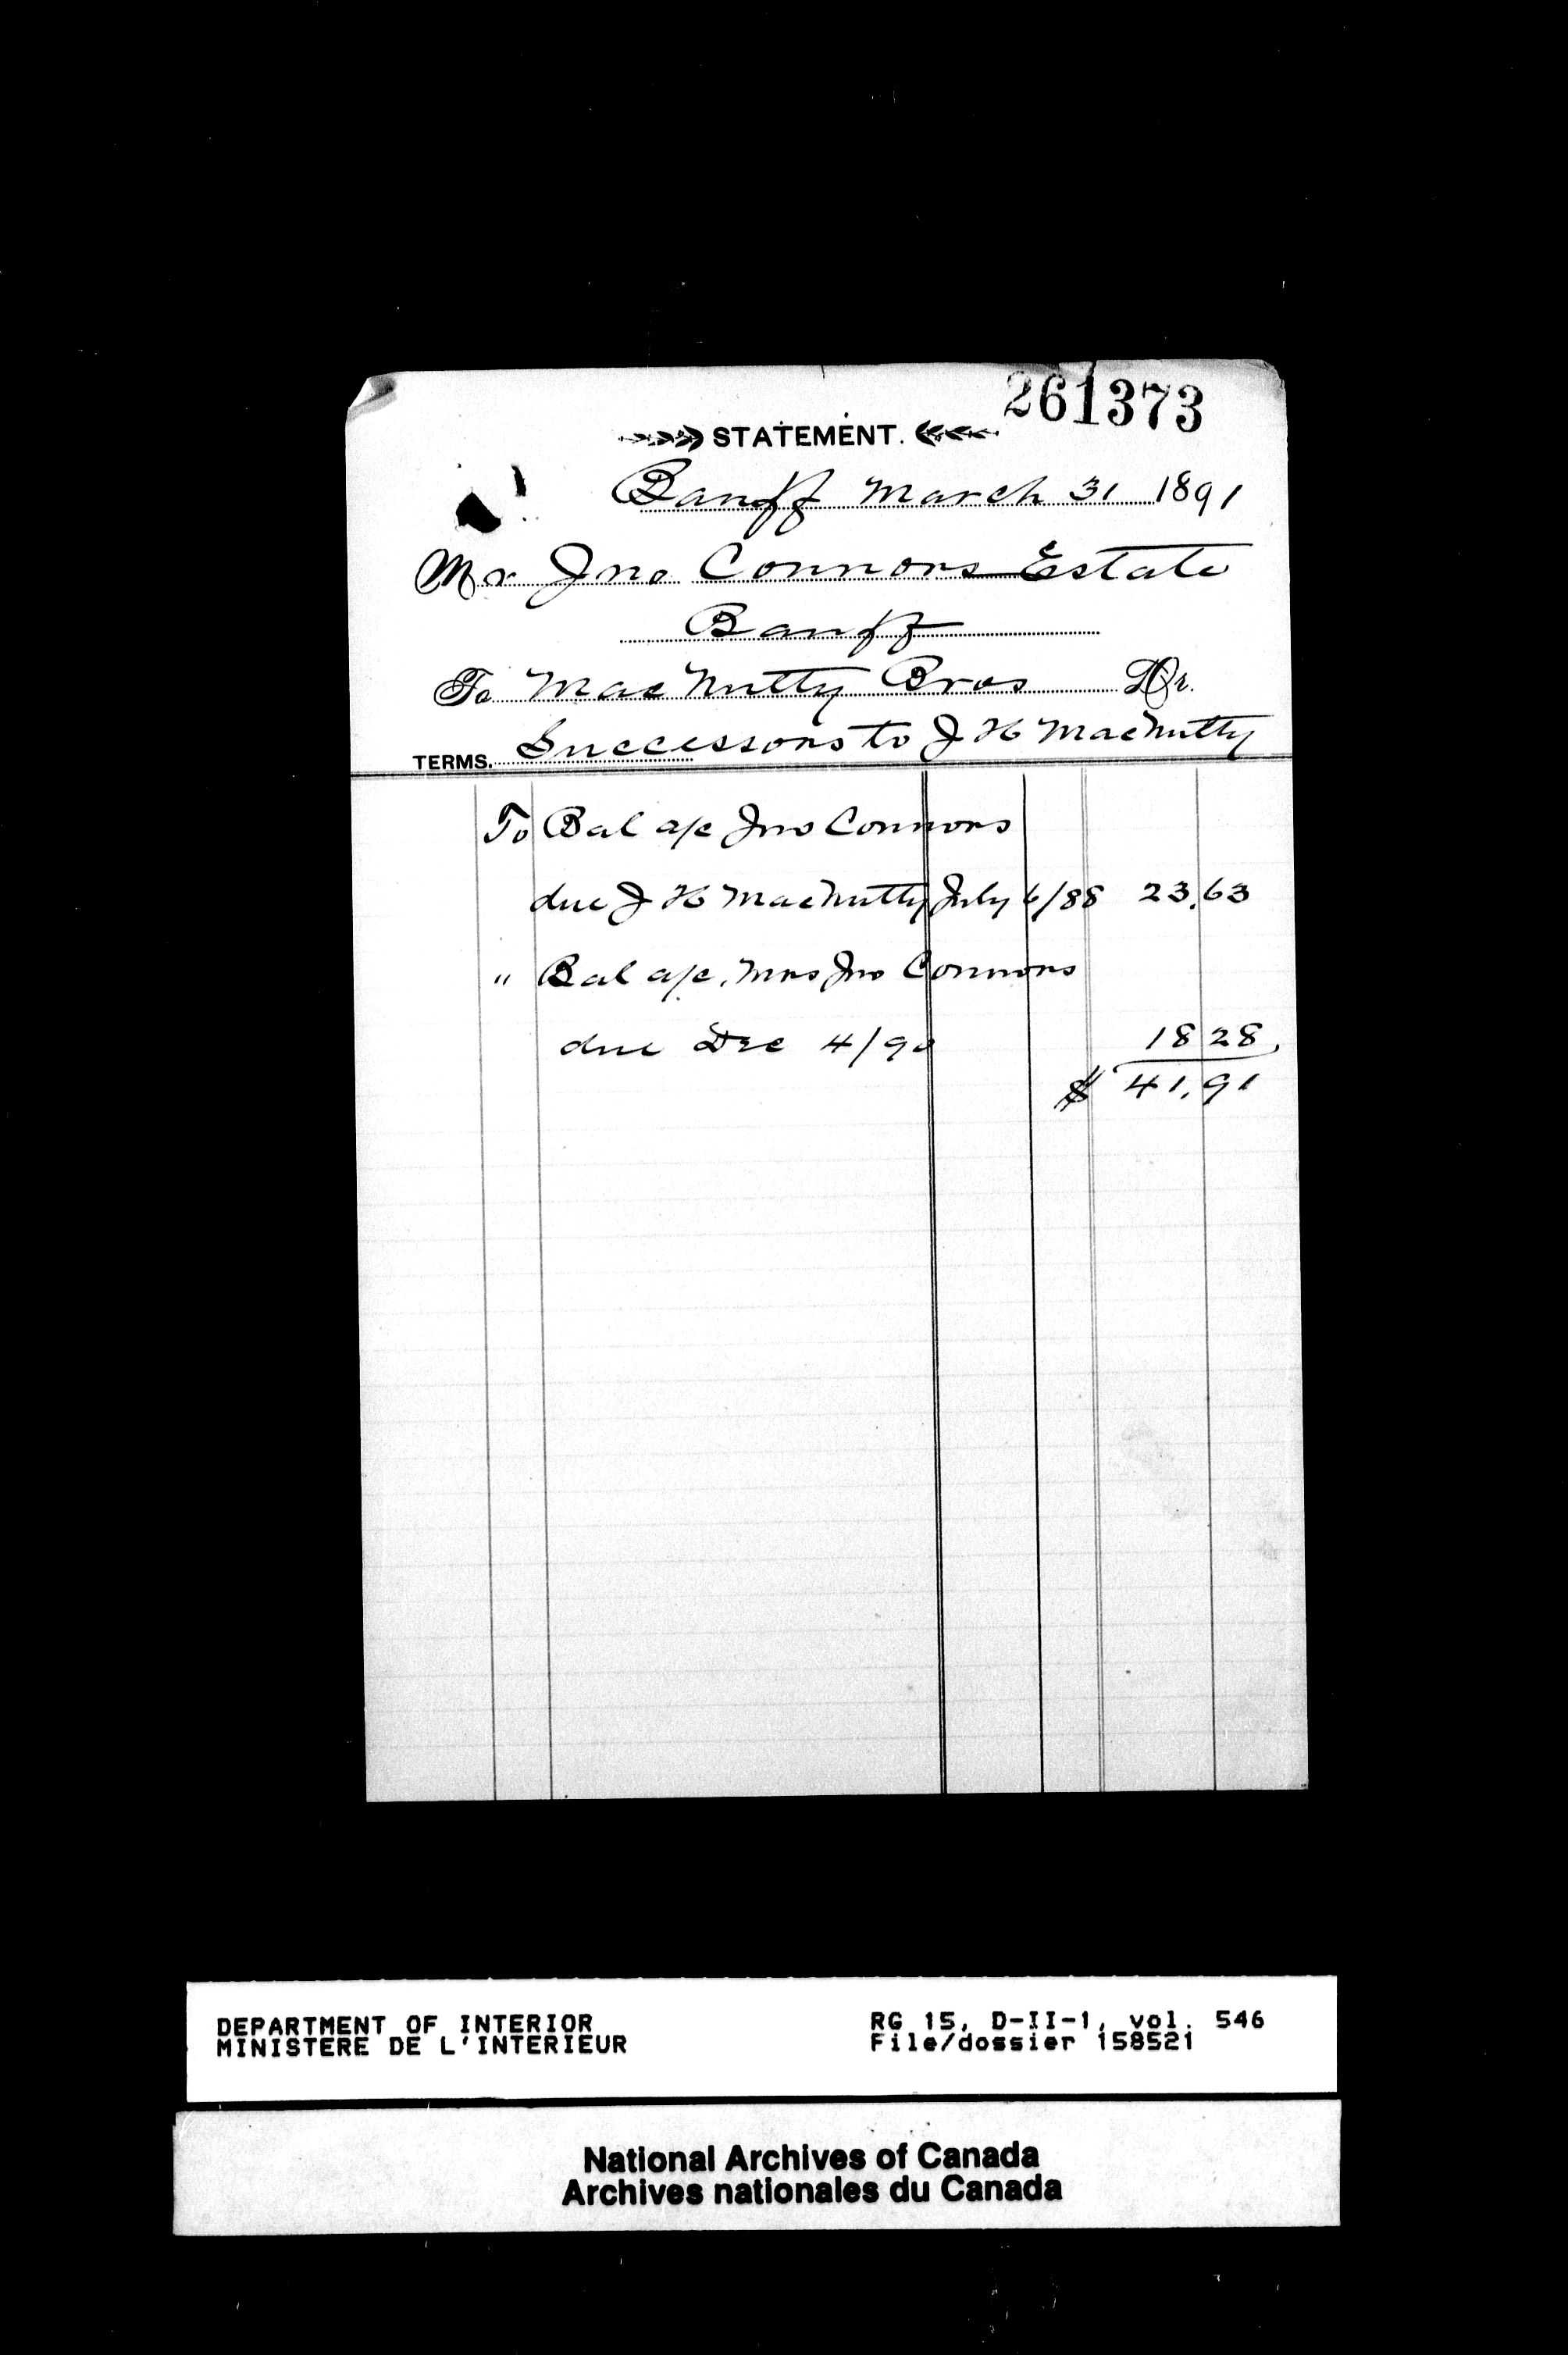 261373
STATEMENT.
Banff March 31 1891
Mr Jno Connors Estate
Banff
To MacNutty Bros Dr.
TERMS. Successors to J H MacNutty
To Bal a/c Jno Connors
due J H MacNutty July 6/88 23.63
" Bal a/c. Mrs Jno Connors
due Dec 4/90 18 28
$ 41.91
DEPARTMENT OF INTERIOR RG 15, D-II-1, vol. 546
MINISTERE DE L'INTERIEUR File/dossier 158521
National Archives of Canada
Archives nationales du Canada